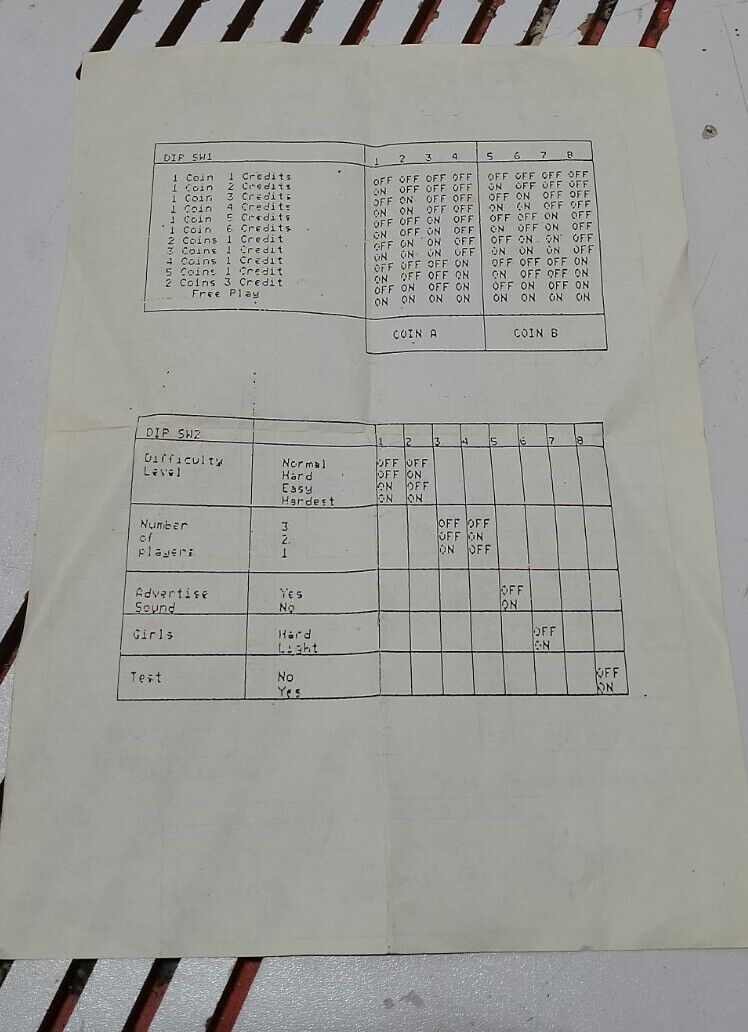 DIP SW1 1 2 3 4 5 6 7 8
1 Coin 1 Credits OFF OFF OFF OFF OFF OFF OFF OFF
1 Coin 2 Credits ON OFF OFF OFF ON OFF OFF OFF
1 Coin 3 Credits OFF ON OFF OFF OFF ON OFF OFF
1 Coin 4 Credits ON ON OFF OFF ON ON OFF OFF
1 Coin 5 Credits OFF OFF ON OFF OFF OFF ON OFF
1 Coin 6 Credits ON OFF ON OFF ON OFF ON OFF
2 Coins 1 Credit OFF ON ON OFF OFF ON ON OFF
3 Coins 1 Credit ON ON ON OFF ON ON ON OFF
4 Coins 1 Credit OFF OFF OFF ON OFF OFF OFF ON
5 Coins 1 Credit ON OFF OFF ON ON OFF OFF ON
2 Coins 3 Credit OFF ON OFF ON OFF ON OFF ON
Free Play ON ON ON ON ON ON ON ON
COIN A COIN B
DIP SW2 1 2 3 4 5 6 7 8
Difficulty Normal OFF OFF
Level Hard OFF ON
Easy ON OFF
Hardest ON ON
Number 3 OFF OFF
of 2 OFF ON
players 1 ON OFF
Advertise Yes OFF
Sound No ON
Girls Hard OFF
Light ON
Test No OFF
Yes ON